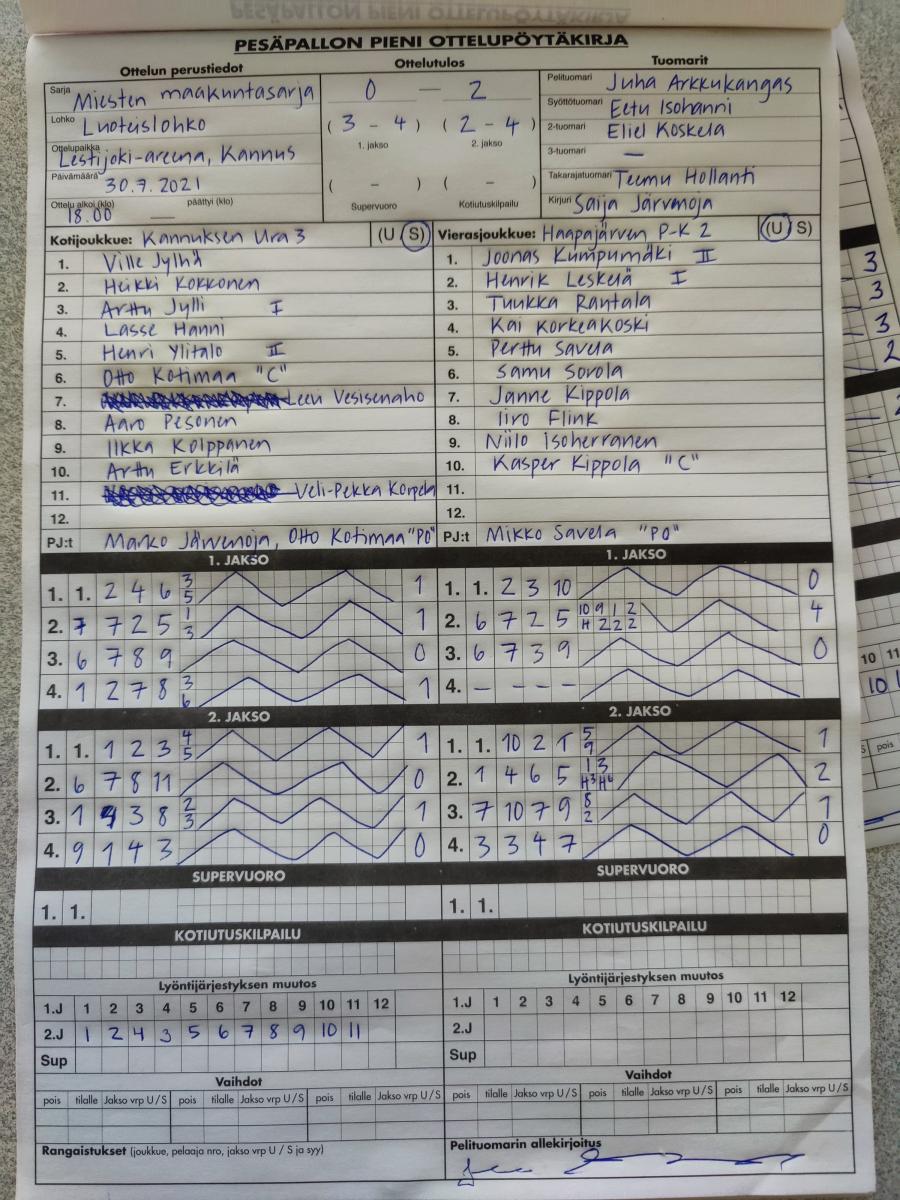 PESÄPALLON PIENI OTTELUPÖYTÄKIRJA
Ottelun perustiedot
Sarja Miesten maakuntasarja
Lohko Luoteislohko
Ottelupaikka Lestijoki-areena, Kannus
Päivämäärä 30.7.2021
Ottelu alkoi (klo) 18.00 päättyi (klo)
Ottelutulos
0 — 2
(3 - 4) (2 - 4)
1. jakso 2. jakso
( - ) ( - )
Supervuoro Kotiutuskilpailu
Tuomarit
Pelituomari Juha Arkkukangas
Syöttötuomari Eetu Isohanni
2-tuomari Eliel Koskela
3-tuomari —
Takarajatuomari Teemu Hollanti
Kirjuri Saija Järvenoja
Kotijoukkue: Kannuksen Ura 3 (U S)
1. Ville Jylhä
2. Heikki Kokkonen
3. Arttu Jylli I
4. Lasse Hanni
5. Henri Ylitalo II
6. Otto Kotimaa "C"
7. Leevi Vesisenaho
8. Aaro Pesonen
9. Ilkka Kolppanen
10. Arttu Erkkilä
11. Veli-Pekka Korpela
12.
PJ:t Marko Järvenoja, Otto Kotimaa "PO"
Vierasjoukkue: Haapajärven P-K 2 (U S)
1. Joonas Kumpumäki II
2. Henrik Leskelä I
3. Tuukka Rantala
4. Kai Korkeakoski
5. Perttu Savela
6. Samu Sorola
7. Janne Kippola
8. Iiro Flink
9. Niilo Isoherranen
10. Kasper Kippola "C"
11.
12.
PJ:t Mikko Savela "PO"
1. JAKSO
1. 1. 2 4 6 3 5 1
2. 7 7 2 5 1 3 1
3. 6 7 8 9 0
4. 1 2 7 8 3 6 1
1. JAKSO
1. 1. 2 3 10 0
2. 6 7 2 5 10 9 1 2 H 2 2 2 4
3. 6 7 3 9 0
4. - - - -
2. JAKSO
1. 1. 1 2 3 4 5 1
2. 6 7 8 11 0
3. 1 4 3 8 2 3 1
4. 9 1 4 3 0
2. JAKSO
1. 1. 10 2 1 5 9 1
2. 1 4 6 5 1 3 H3 H6 2
3. 7 10 7 9 8 2 1
4. 3 3 4 7 0
SUPERVUORO
1. 1.
SUPERVUORO
1. 1.
KOTIUTUSKILPAILU
KOTIUTUSKILPAILU
Lyöntijärjestyksen muutos
1.J 1 2 3 4 5 6 7 8 9 10 11 12
2.J 1 2 4 3 5 6 7 8 9 10 11
Sup
Lyöntijärjestyksen muutos
1.J 1 2 3 4 5 6 7 8 9 10 11 12
2.J
Sup
Vaihdot
pois tilalle Jakso vrp U/S pois tilalle Jakso vrp U/S pois tilalle Jakso vrp U/S
Vaihdot
pois tilalle Jakso vrp U/S pois tilalle Jakso vrp U/S pois tilalle Jakso vrp U/S
Rangaistukset (joukkue, pelaaja nro, jakso vrp U / S ja syy)
Pelituomarin allekirjoitus